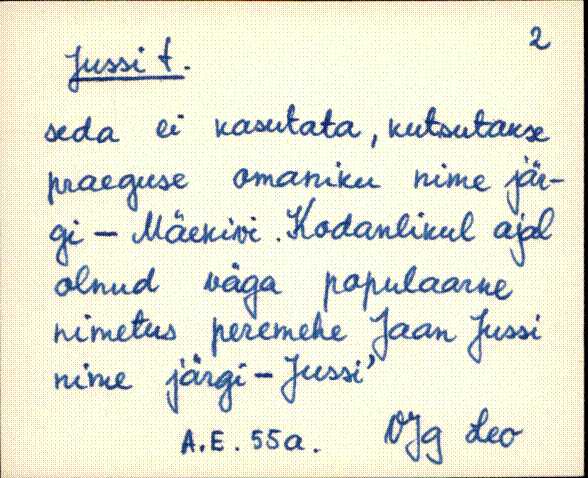 2
Jussi t.
seda ei kasutata, kutsutakse
praeguse omaniku nime jär-
gi – Mäekivi. Kodanlikul ajal
olnud väga populaarne
nimetus peremehe Jaan Jussi
nime järgi – Jussi'
A.E. 55a. VJg Leo